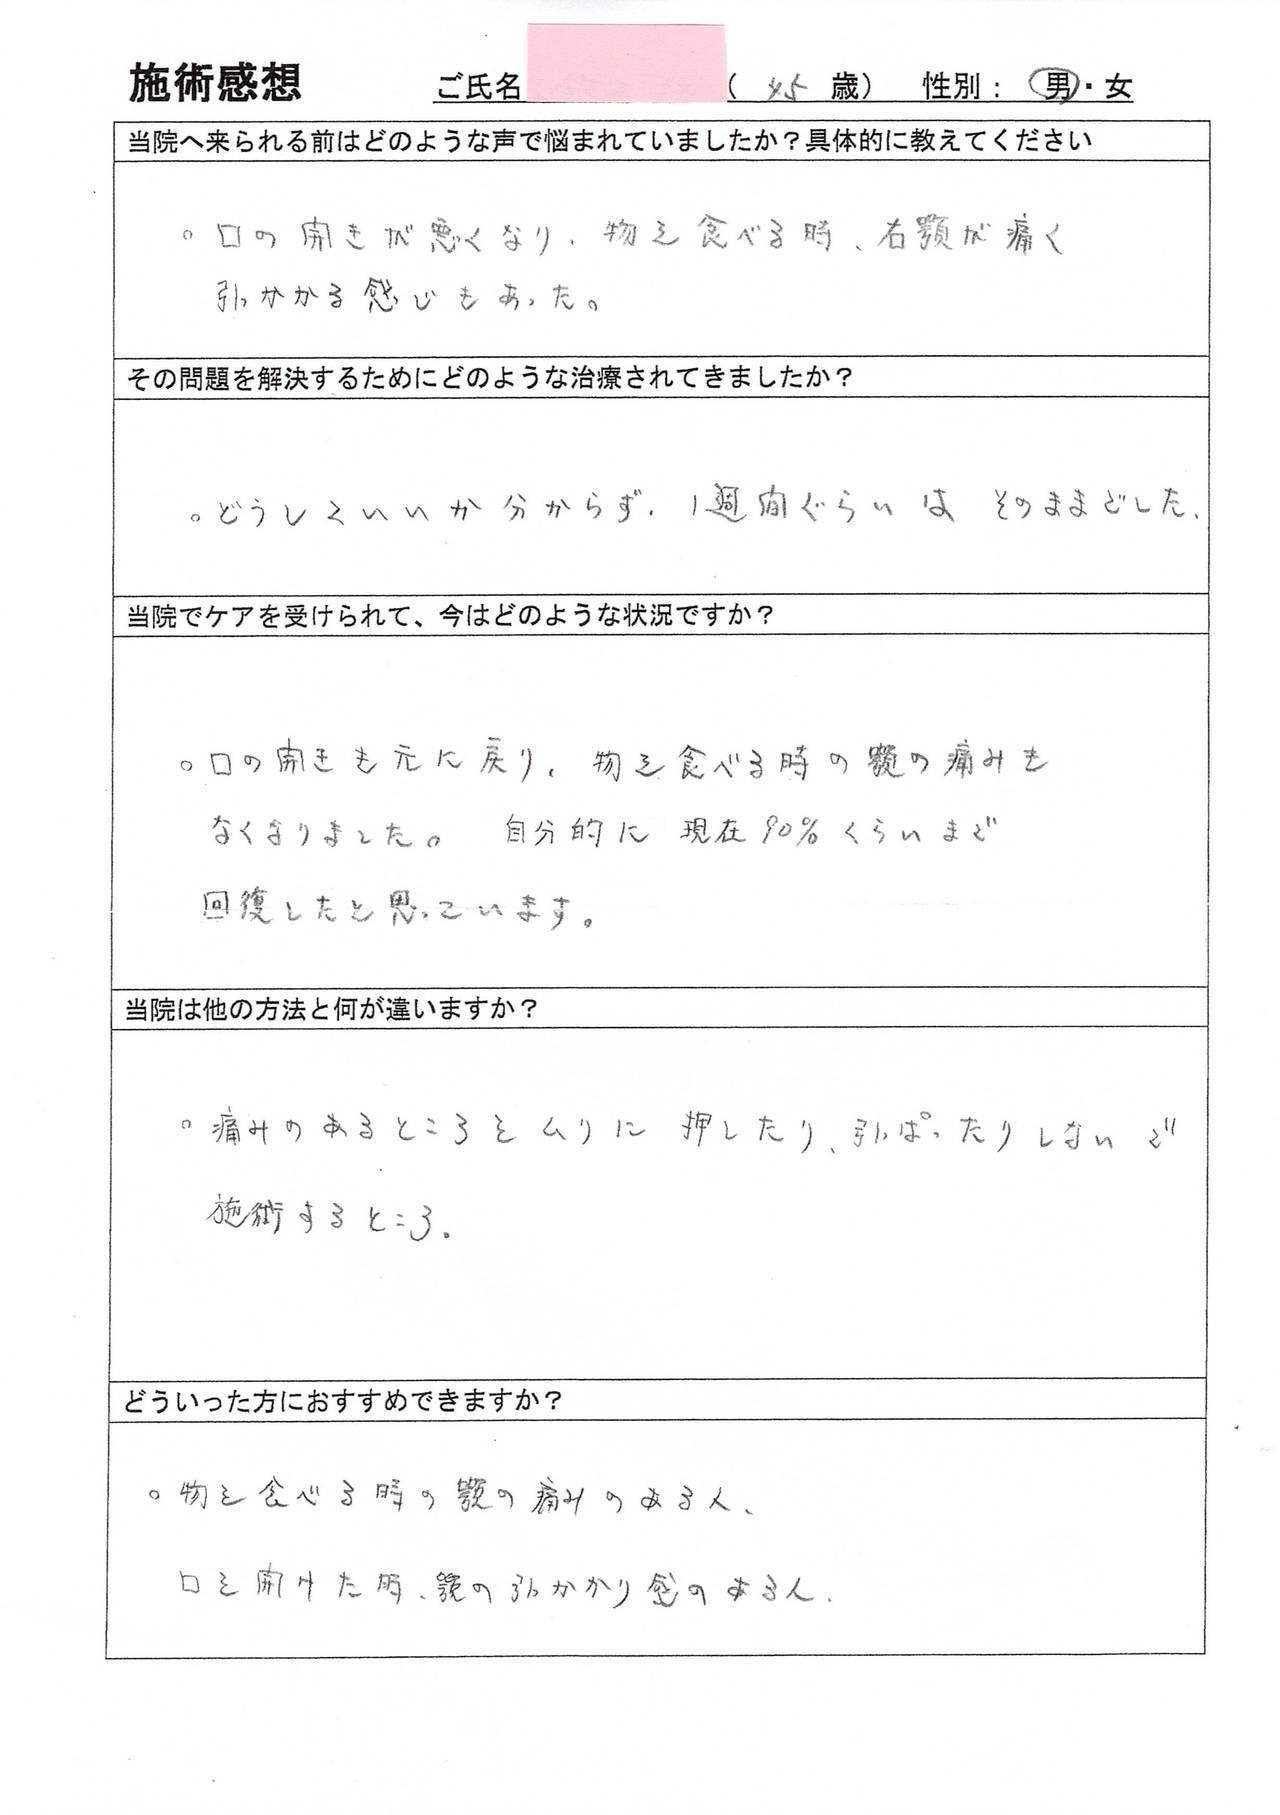 施術感想 ご氏名 ( 45 歳) 性別： 男・女
当院へ来られる前はどのような声で悩まれていましたか？具体的に教えてください
。口の開きが悪くなり、物を食べる時、右顎が痛く
引っかかる感じもあった。
その問題を解決するためにどのような治療されてきましたか？
。どうしていいか分からず、1週間ぐらいは そのままでした、
当院でケアを受けられて、今はどのような状況ですか？
。口の開きも元に戻り、物を食べる時の顎の痛みも
なくなりました。 自分的に 現在90%くらいまで
回復したと思っています。
当院は他の方法と何が違いますか？
。痛みのあるところをムリに 押したり、引っぱったりしないで
施術するところ.
どういった方におすすめできますか？
。物を食べる時の顎の痛みのある人、
口を開けた時、顎の引っかかり感のある人.